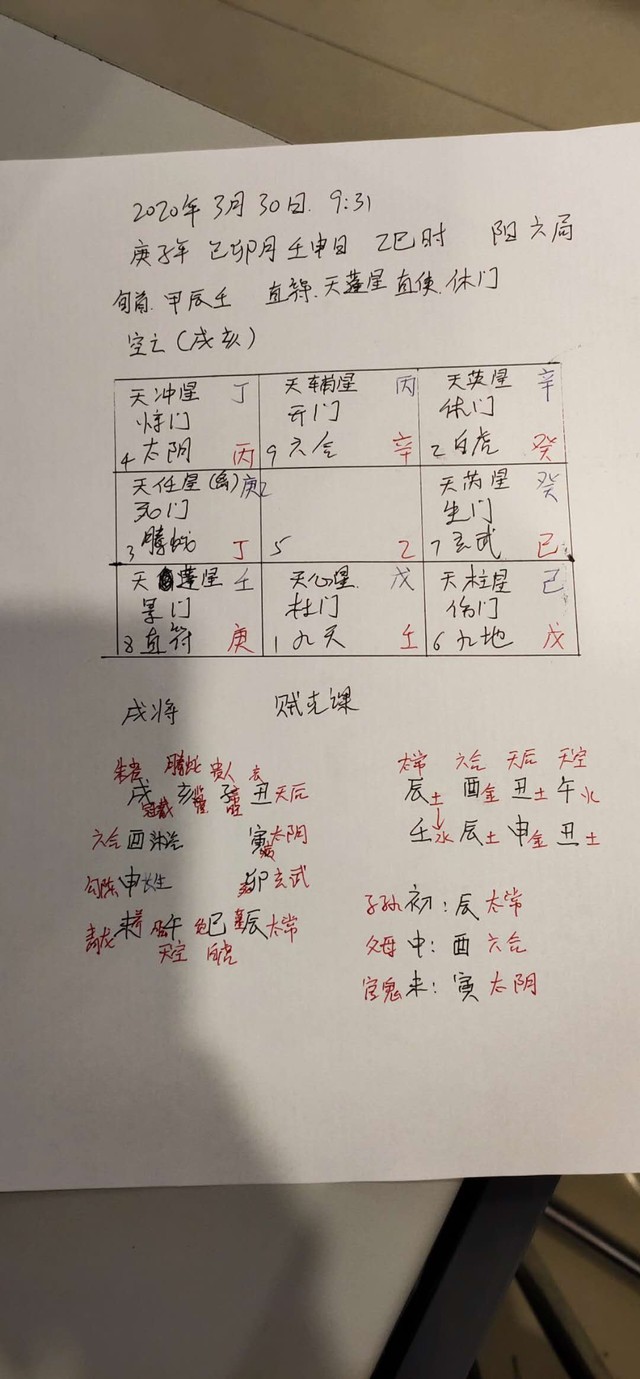 2020年3月30日. 9:31
庚子年 己卯月 壬申日 乙巳时 阳六局
旬首.甲辰壬 直符.天蓬星 直使.休门
空亡(戌亥)
天冲星 丁 天辅星 丙 天英星 辛
惊门 开门 休门
4 太阴 丙 9 六合 辛 2 白虎 癸
天任星(乙)庚 天芮星 癸
死门 生门
3 腾蛇 丁 5 乙 7 玄武 己
天蓬星 壬 天心星 戊 天柱星 己
景门 杜门 伤门
8 直符 庚 1 九天 壬 6 九地 戊
戌将 贼克课
朱雀 腾蛇 贵人
戌 亥 子 丑 天后
六合 酉 沐浴 寅 太阴
勾陈 申 长生 卯 玄武
青龙 未 午 巳 辰 太常
天空 白虎
太常 六合 天后 天空
辰土 酉金 丑土 午火
壬水 辰土 申金 丑土
子孙 初:辰 太常
父母 中:酉 六合
官鬼 末:寅 太阴